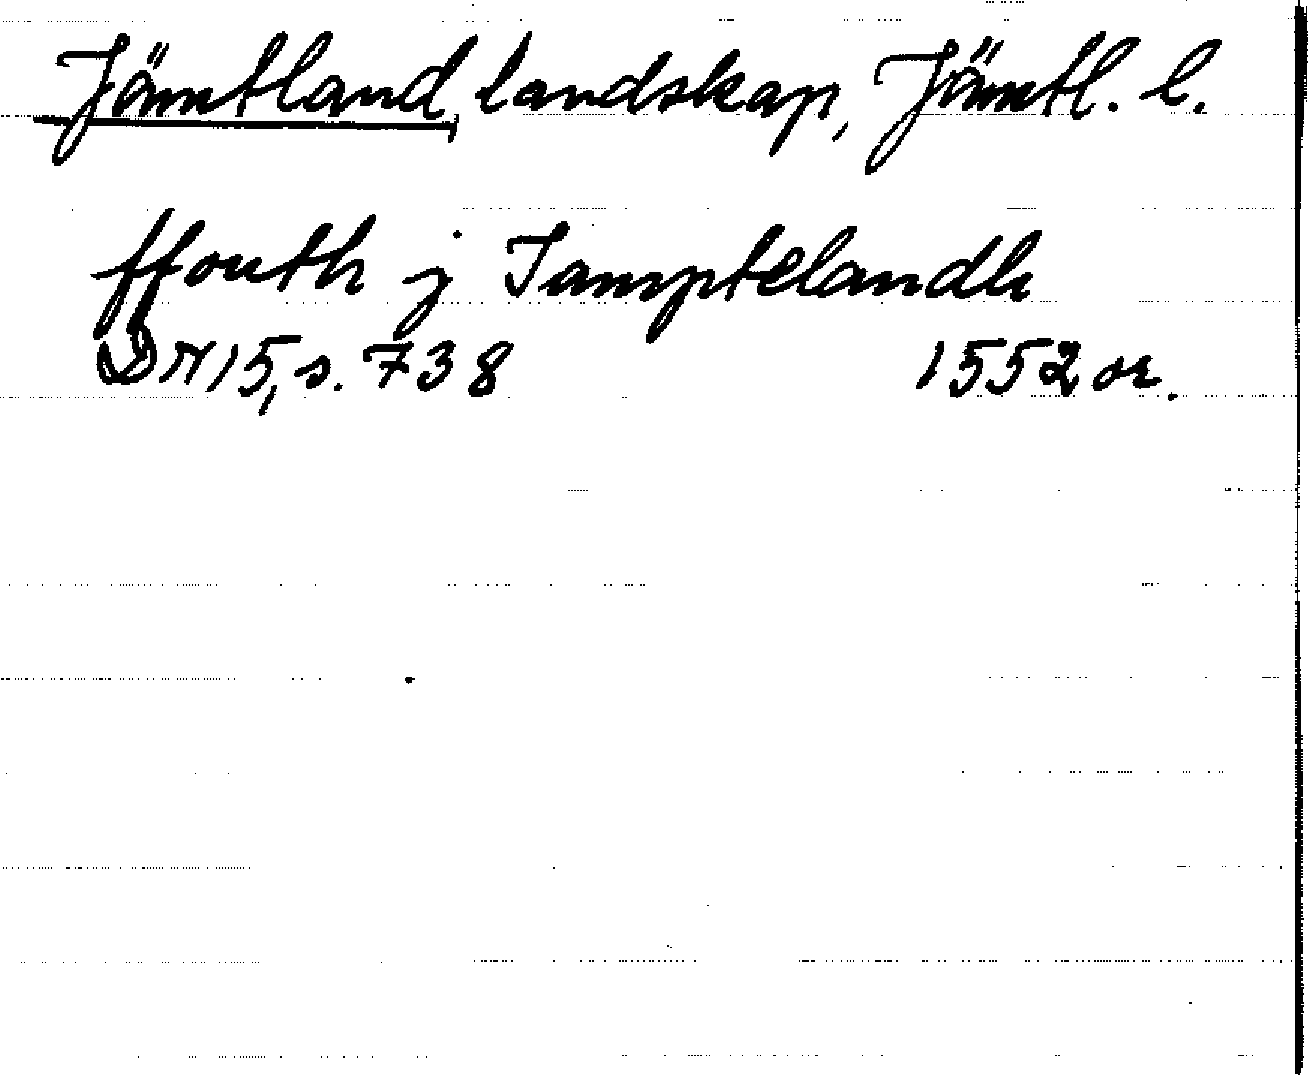 Jämtland landskap, Jämtl. l.
ffouth j Jamptelandh
DN15, s. 738 1552 or.